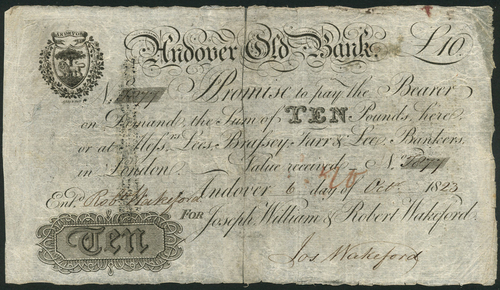 ANDOVER
Andover Old Bank £10
I Promise to pay the Bearer
on Demand the Sum of TEN Pounds here
or at Messrs. Lees Brassey Farr & Lee Bankers
in London. Value received No
Andover 6 day of Octr. 1823
Entd. Robt. Wakeford FOR Joseph, William & Robert Wakeford
Ten
Jos Wakeford